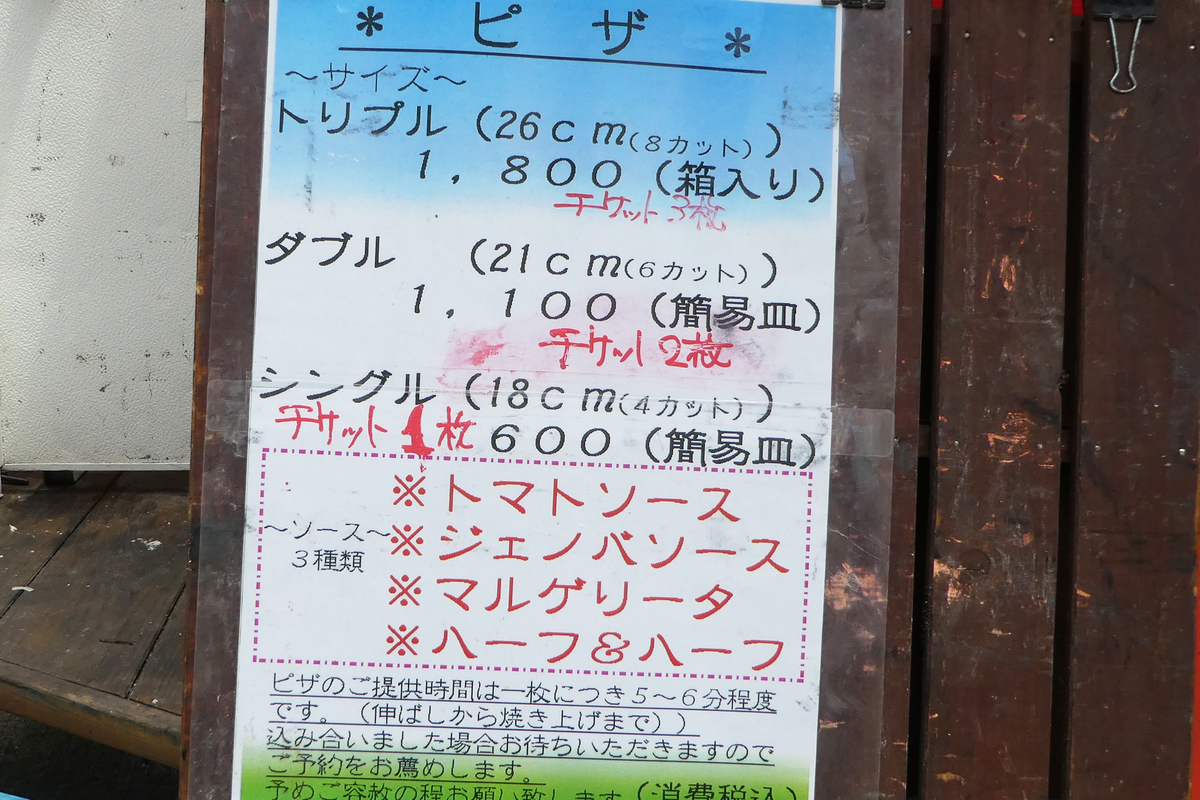 * ピザ *
～サイズ～
トリプル (26cm(8カット))
1,800 (箱入り)
チケット3枚
ダブル (21cm(6カット))
1,100 (簡易皿)
チケット2枚
シングル (18cm(4カット))
チケット1枚 600 (簡易皿)
※トマトソース
～ソース～
3種類
※ジェノバソース
※マルゲリータ
※ハーフ&ハーフ
ピザのご提供時間は一枚につき5～6分程度
です。(伸ばしから焼き上げまで))
込み合いました場合お待ちいただきますので
ご予約をお薦めします。
予めご容赦の程お願い致します(消費税込)